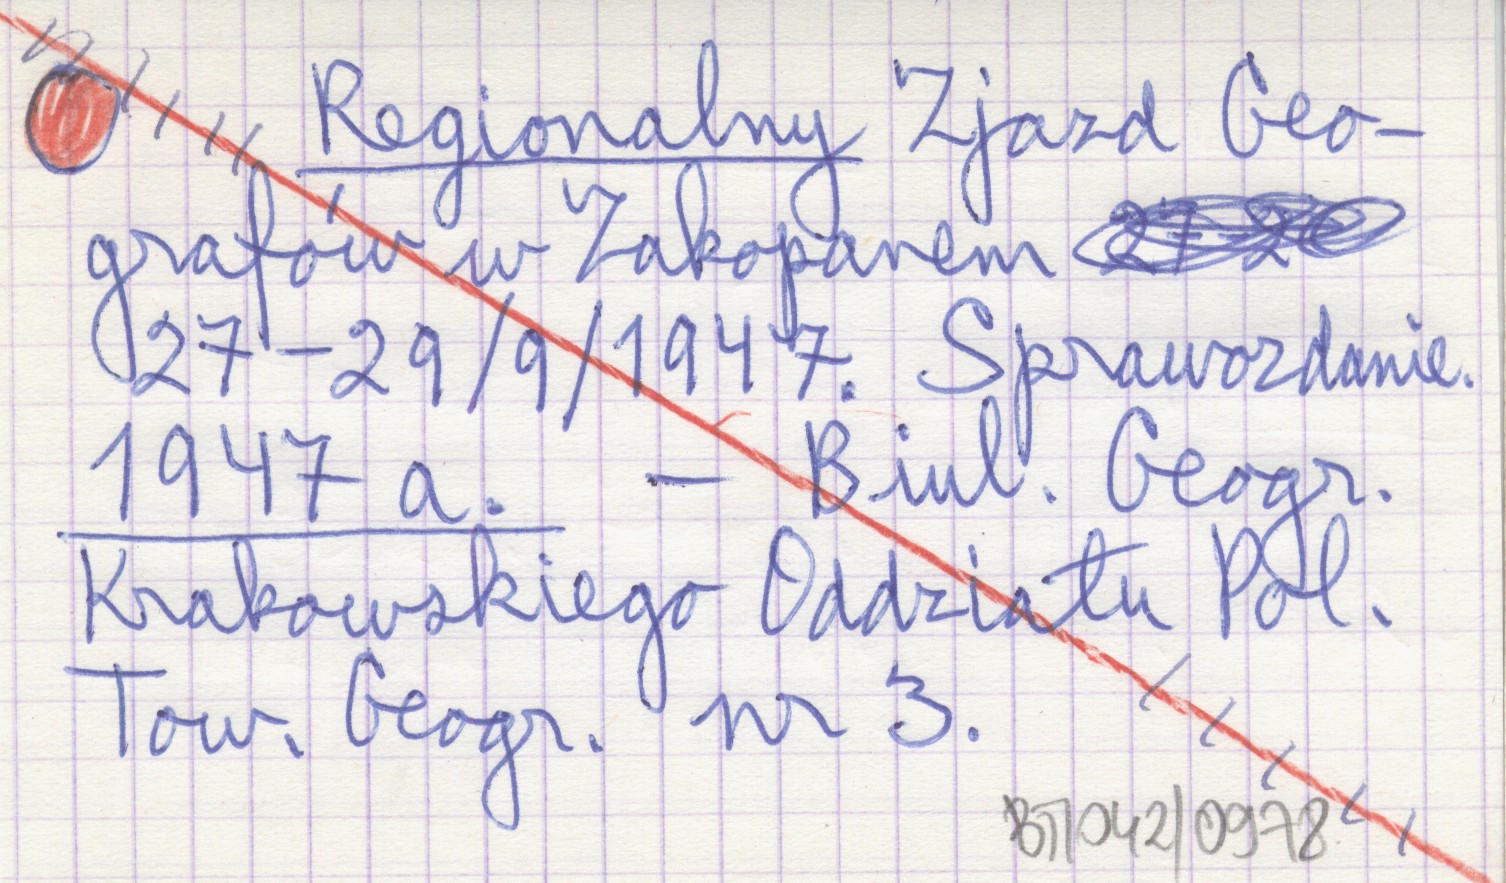 Regionalny Zjazd Geo-
grafów w Zakopanem
27-29/9/1947. Sprawozdanie.
1947 a. - Biul. Geogr.
Krakowskiego Oddziału Pol.
Tow. Geogr. nr 3.
BT/042/0978